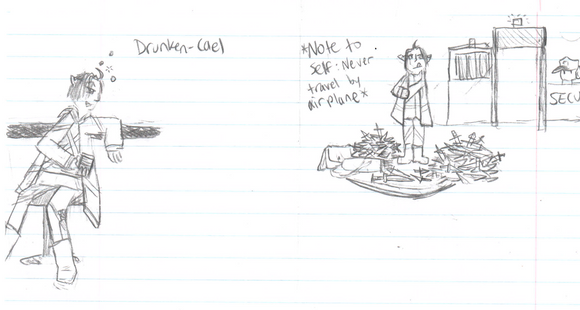 Drunken-Cael
*Note to
self: Never
travel by
airplane*
SECU